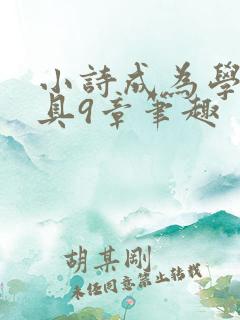 小詩成為學
具9章筆趣
胡某剛
未经同意禁止转载